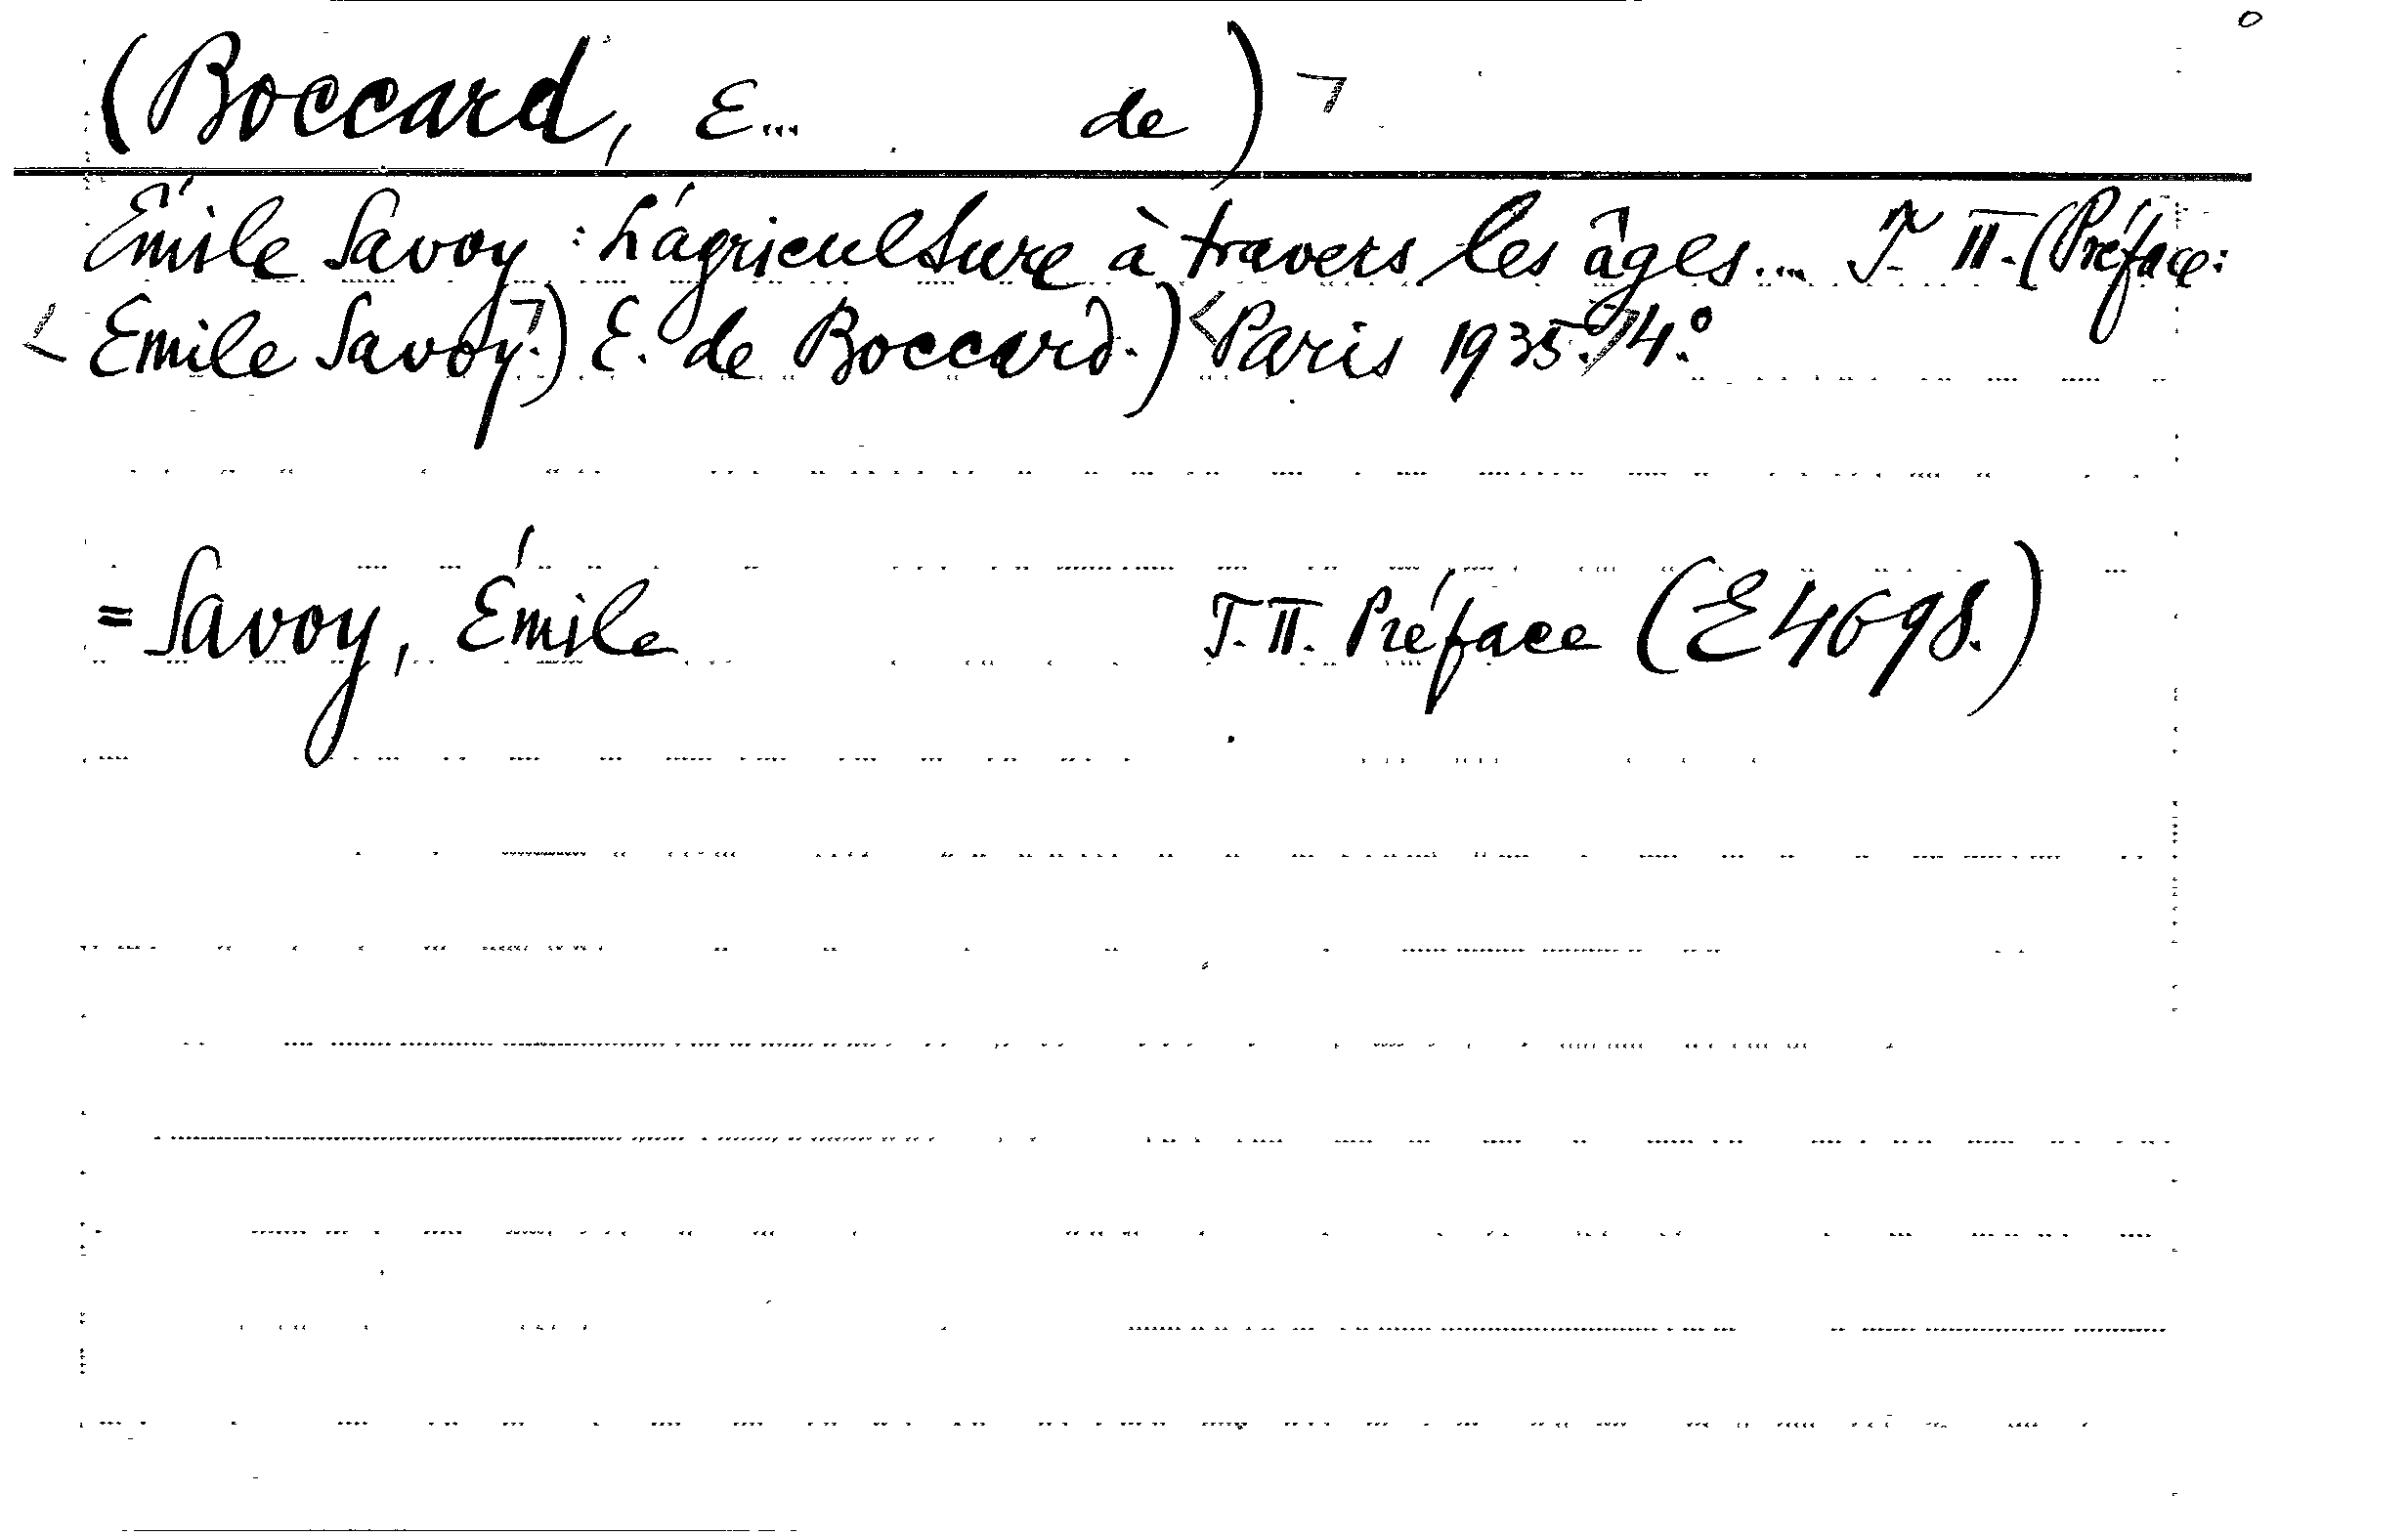 (Boccard, E... de)
Émile Savoy : L'agriculture à travers les âges... T. II. (Préface:
Emile Savoy.) E. de Boccard.) Paris 1935. 4.º
= Savoy, Émile T. II. Préface (E 4698.)